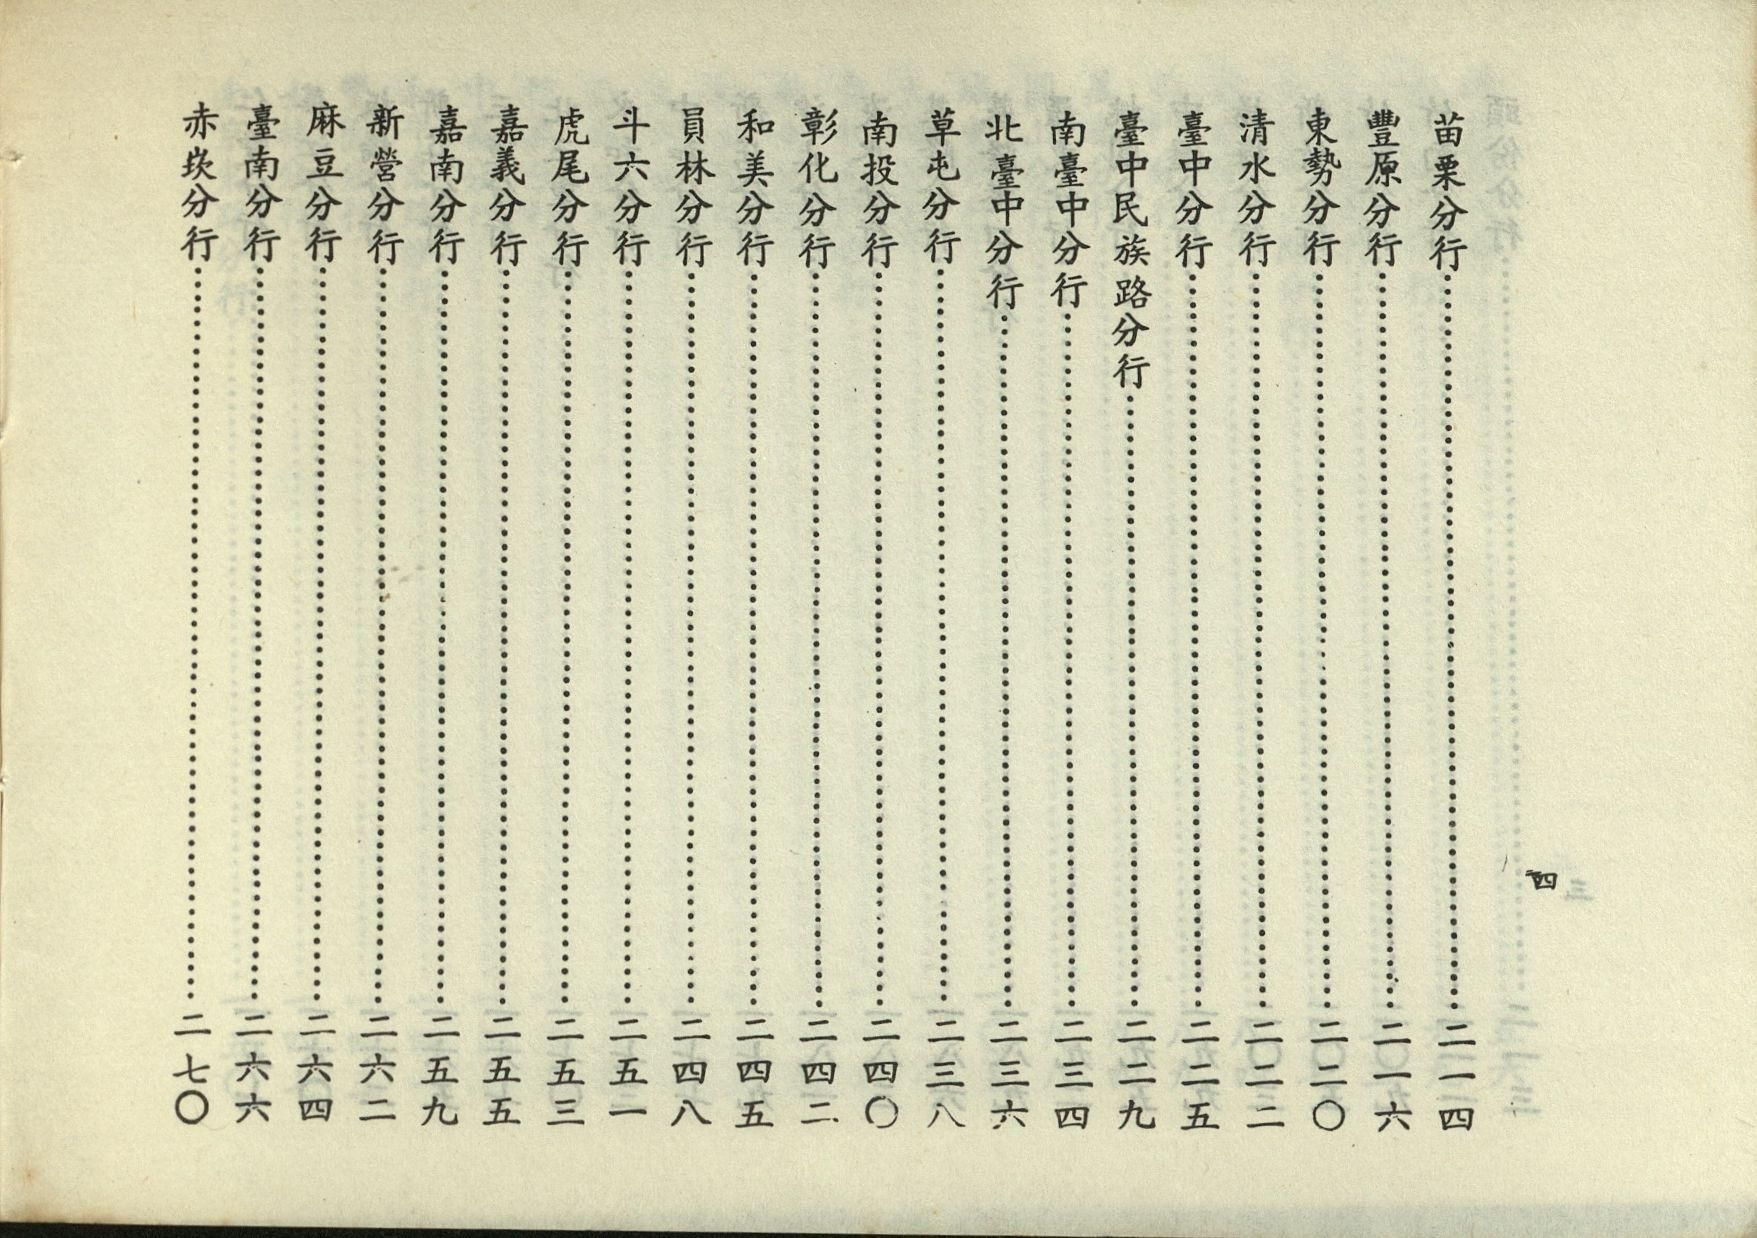 四
苗栗分行……二一四
豐原分行……二一六
東勢分行……二二〇
清水分行……二二二
臺中分行……二二五
臺中民族路分行……二二九
南臺中分行……二三四
北臺中分行……二三六
草屯分行……二三八
南投分行……二四〇
彰化分行……二四二
和美分行……二四五
員林分行……二四八
斗六分行……二五一
虎尾分行……二五三
嘉義分行……二五五
嘉南分行……二五九
新營分行……二六二
麻豆分行……二六四
臺南分行……二六六
赤崁分行……二七〇